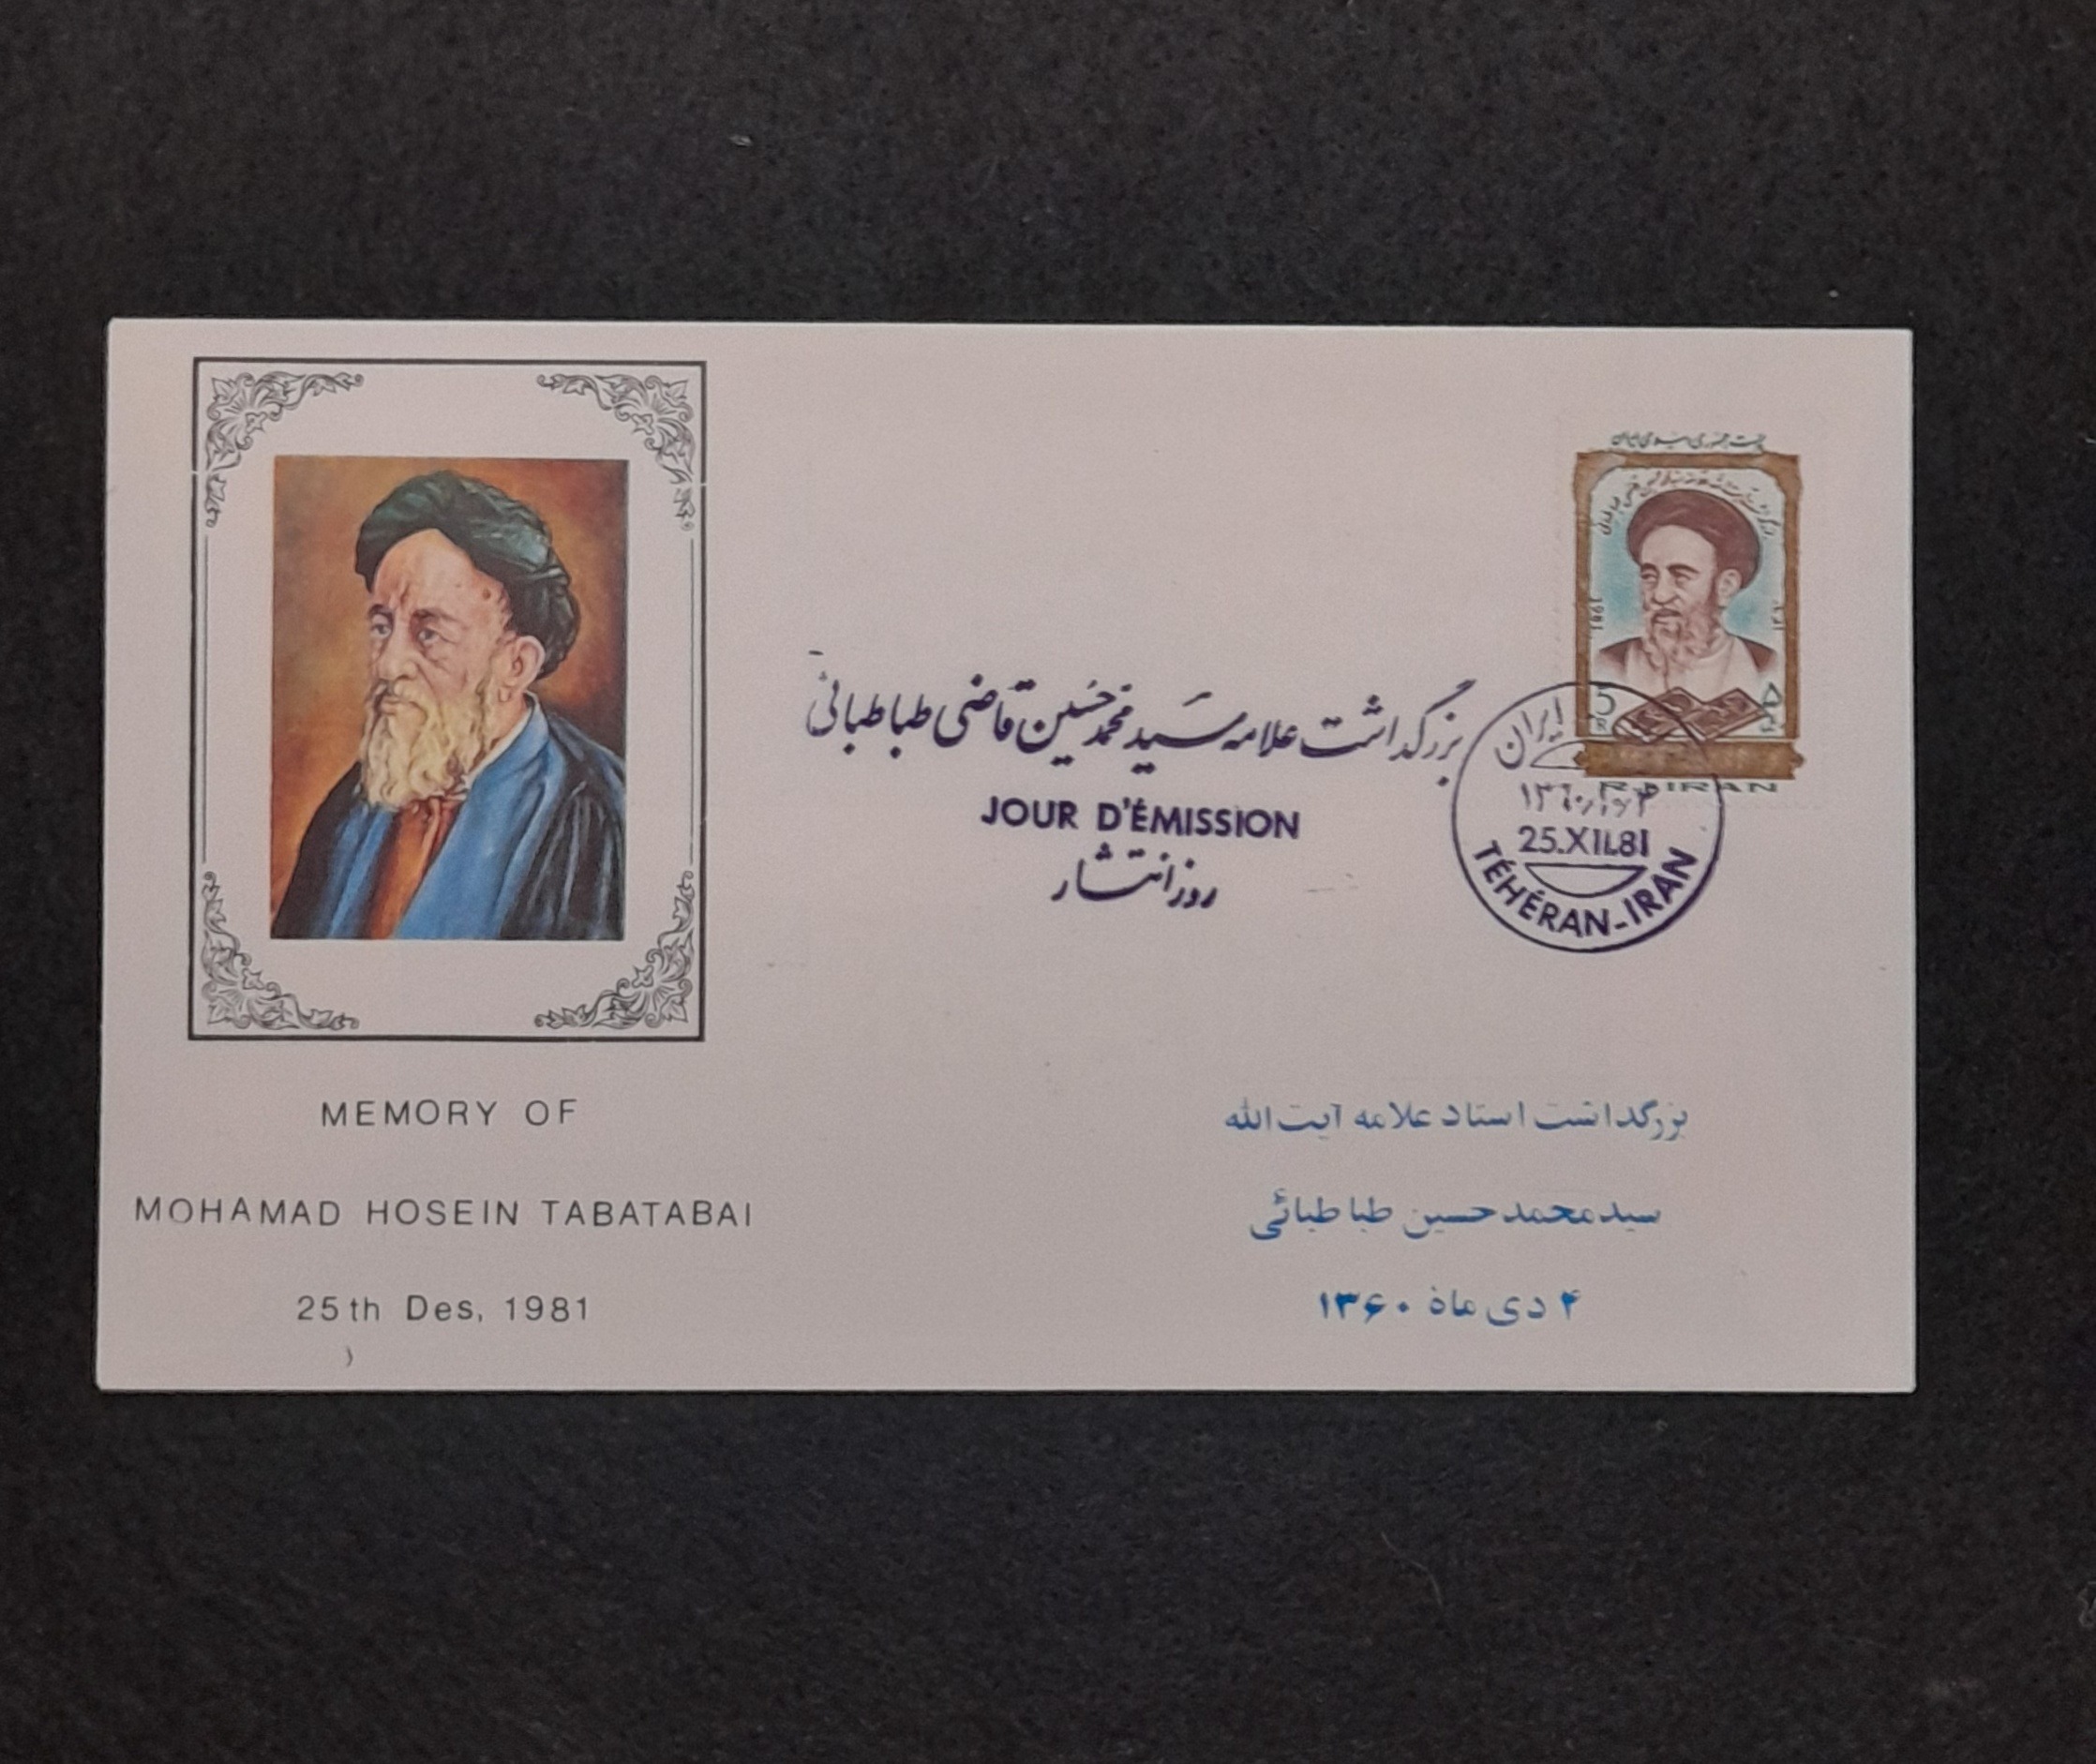 پست جمهوری اسلامی ایران
1981
5
R
۵
R.I.IRAN
بزرگداشت علامه سید محمد حسین قاضی طباطبائی
JOUR D'ÉMISSION
روز انتشار
ایران
25.XII.81
TÉHÉRAN-IRAN
MEMORY OF
MOHAMAD HOSEIN TABATABAI
25th Des, 1981
بزرگداشت استاد علامه آیت الله
سید محمد حسین طباطبائی
۴ دی ماه ۱۳۶۰